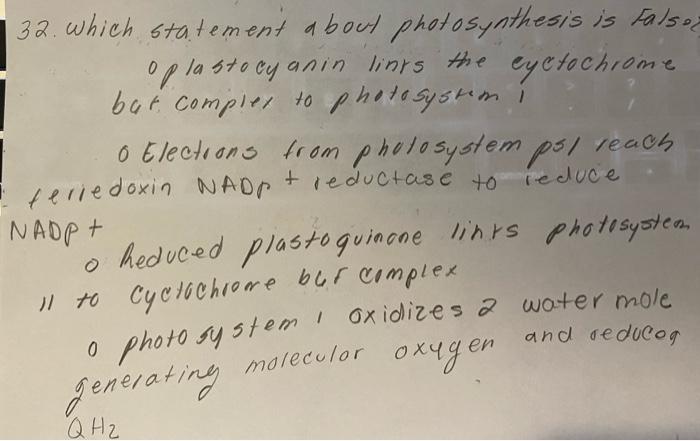 32. which statement about photosynthesis is False?
o plastocyanin links the cyctochrome
b6f complex to photosystem 1
o Elections from photosystem ps1 reach
ferredoxin NADP + reductase to reduce
NADP +
o Reduced plastoquinone links photosystem
11 to cyctochrome b6f complex
o photosystem 1 oxidizes 2 water mole
generating molecular oxygen and reducog
QH2